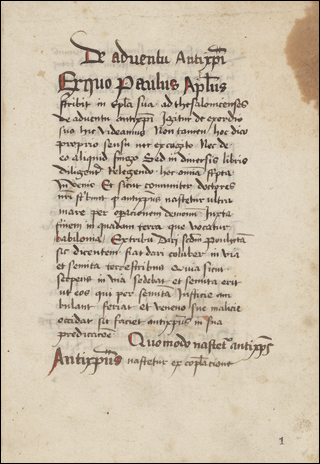 De adventu Antixpi
Exquo Paulus Aplus
scribit in Epla sua ad thesalonicenses
de adventu antixpi Igitur de exordio
suo hic videamus Non tamen hoc dico
proprio sensu nec excogito Nec de
eo aliquid fingo Sed in diversis libris
diligenter Relegendo hec omnia scripta
Invenio Et sicut communiter doctores
nri antixpus nascetur ultra
mare per opacionem demonum Iuxta
finem in quadam terra que vocatur
babilonia Ex tribu Dan scdm
sic dicentem fiat dan coluber in via
et semita Quia sicut
serpens in via sedebat et semita erit
ut eos qui per semita Iusticie am
bulant feriat et veneno sue malicie
occidat sic faciet antixpus in sua
predicacoe Quomodo nascetur antixps
Antixpus nascetur ex coplacione
1